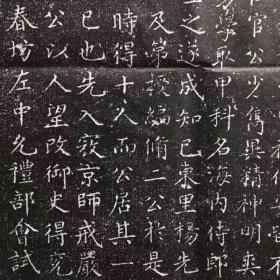 官公少雋異精神明爽
學取甲科名海内侍郎
之遂成知巳東里楊先
及第授編脩二公於是
時得十人而公居其一
巳也先入寇京師戒嚴
公以人望改御史得兖
春坊左中允禮部會試